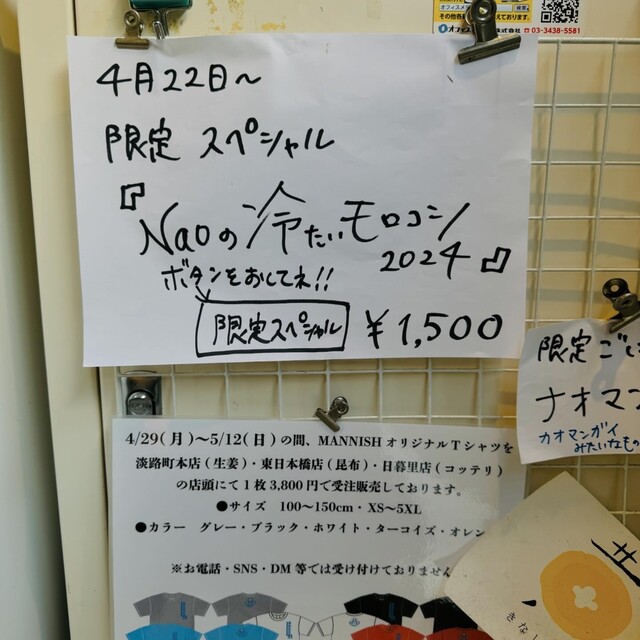 その他各種
検索
オフィス
株式会社
03-3438-5581
4月22日～
限定 スペシャル
『Naoの冷たいモロコシ
2024』
ボタンをおしてネ!!
限定スペシャル ¥1,500
限定ごは
ナオマン
カオマンガイ
みたいなもの
4/29(月)～5/12(日)の間、MANNISHオリジナルTシャツを
淡路町本店(生姜)・東日本橋店(昆布)・日暮里店(コッテリ)
の店頭にて1枚3,800円で受注販売しております。
●サイズ 100～150cm・XS～5XL
●カラー グレー・ブラック・ホワイト・ターコイズ・オレン
※お電話・SNS・DM等では受け付けておりません
きな